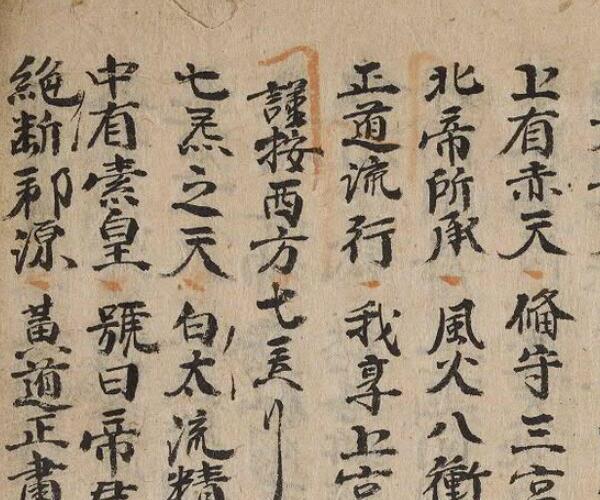 上有赤天 備守三宫
北帝所承 風火八衝
正道流行 我享上宫
謹按西方七炁
七炁之天 白太流精
中有素皇 號曰帝
絕断邪源 黃道正肅